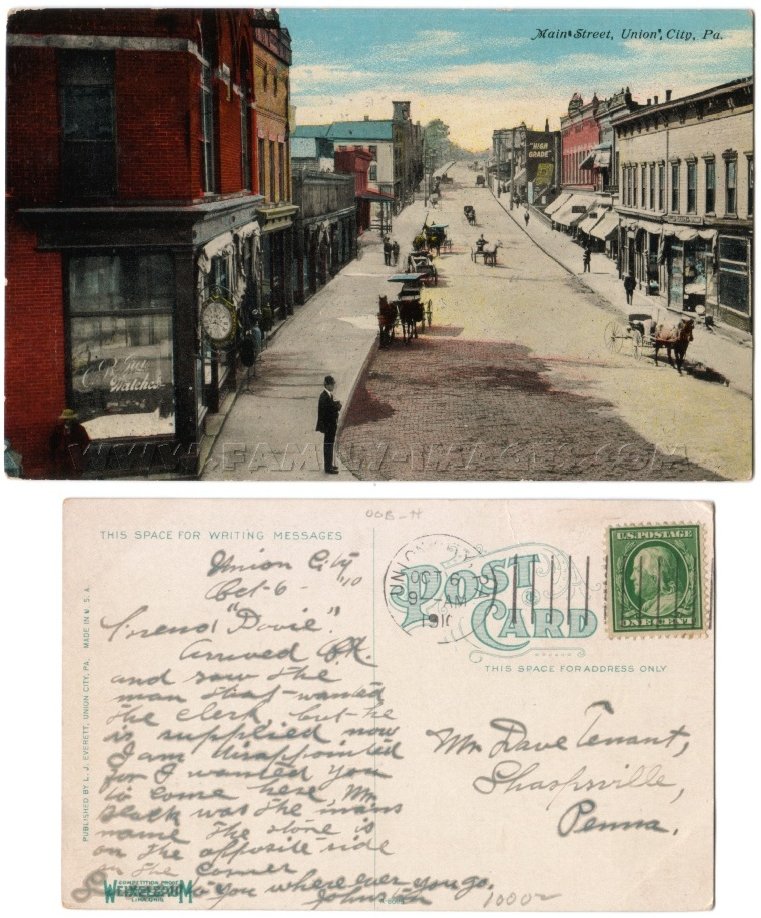 Main Street, Union City, Pa.
"HIGH
GRADE"
Watches
WWW.FAMILY-IMAGES.COM
OOB-H
THIS SPACE FOR WRITING MESSAGES
Union City
Oct-6- '10
Friend "Davie".
Arrived O.K.
and saw the
man that wanted
the clerk, but he
is supplied now
I am disappointed
for I wanted you
to come here, Mr.
Black was the mans
name the store is
on the opposite side
on the corner
to you where ever you go.
Johnston
PUBLISHED BY L. J. EVERETT, UNION CITY, PA. MADE IN U. S. A.
COMPETITION PROOF
WEIXELBAUM
LIMA, OHIO
UNION CITY, PA.
OCT 6
9 AM
1910
POST CARD
THIS SPACE FOR ADDRESS ONLY
U.S. POSTAGE
ONE CENT
Mr. Dave Tenant,
Sharpsville,
Penna.
1000-